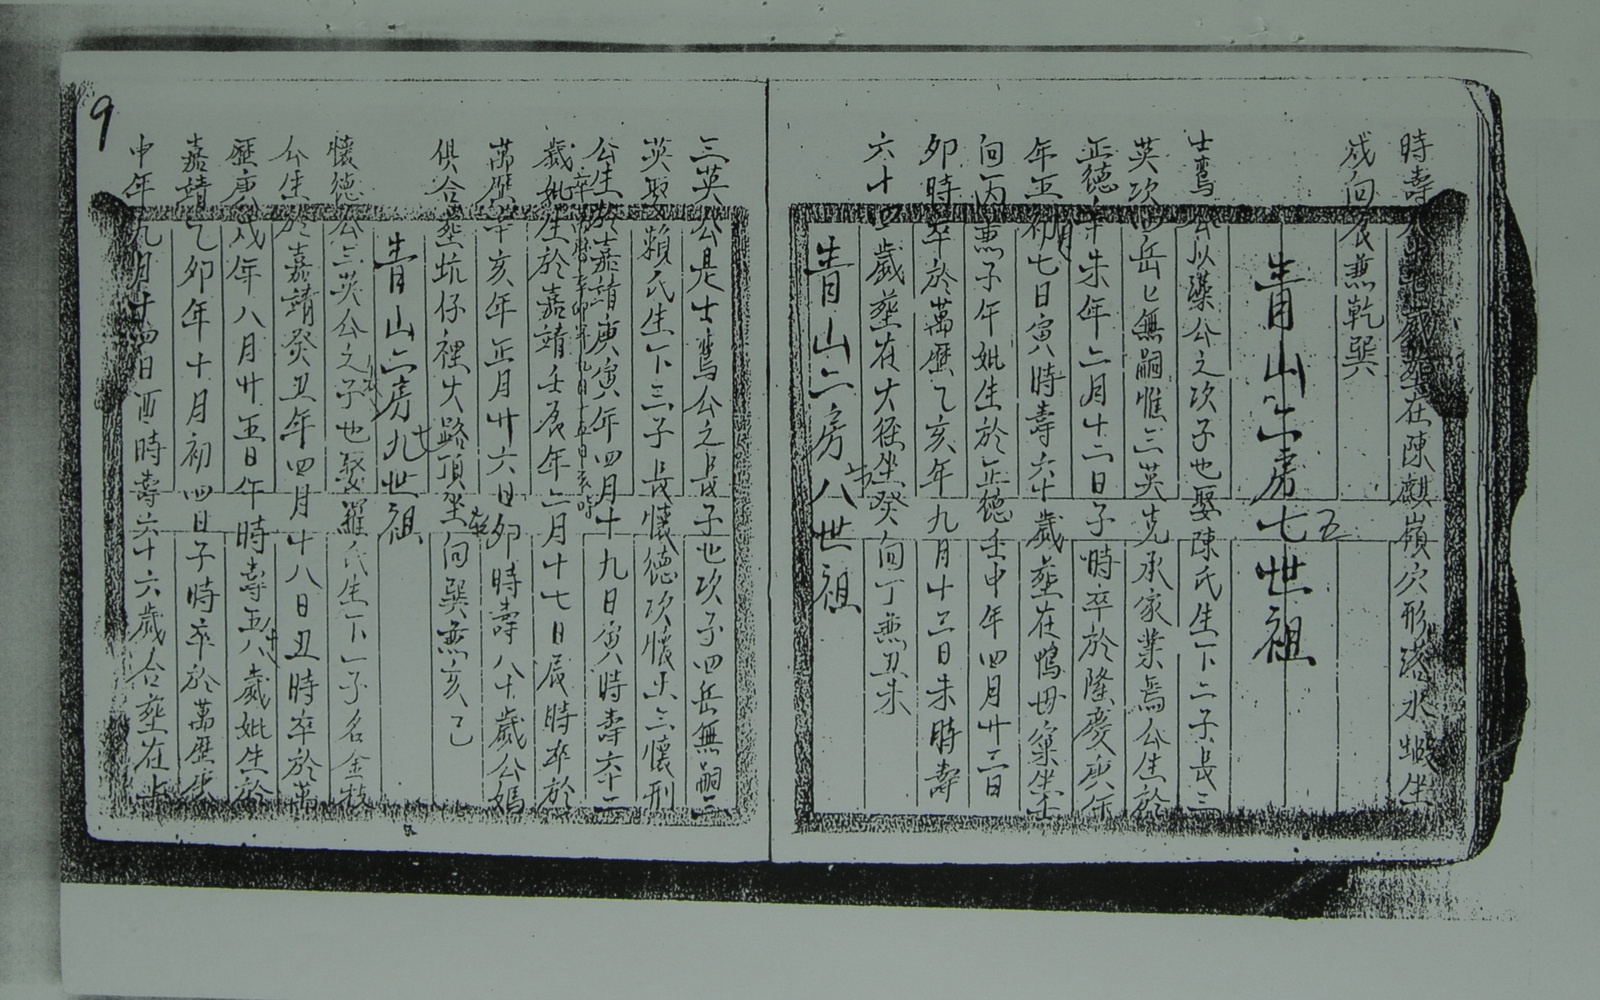 時壽八十九歲葬在陳麒嶺穴形渴水蜈坐
戍向辰兼乾巽
青山二房七世祖
五
士鸞公以藻公之次子也娶陳氏生下二子長三
英次四岳匕無嗣惟三英克承家業焉公生於
正德辛未年二月十二日子時卒於隆慶庚午
年五月初七日寅時壽六十歲葬在鴨母窠坐壬
向丙兼子午妣生於正德壬申年四月廿三日
卯時卒於萬歷乙亥年九月十三日未時壽
六十四歲葬在大徑坐癸向丁兼丑未
青山二房八世祖
三英公是士鸞公之長子也次子四岳無嗣三
英娶賴氏生下三子長懷德次懷忠三懷刑
公生於嘉靖庚寅年四月十九日寅時壽六十二
卒萬曆辛卯年九月十五日亥時
歲妣生於嘉靖壬辰年二月十七日辰時卒於
萬歷辛亥年正月廿六日卯時壽八十歲公媽
俱合葬坑仔裡大路頂坐乾向巽兼亥巳
青山二房九世祖
懷德公三英公之子也娶羅氏生下一子名金枝
公生於嘉靖癸丑年四月十八日丑時卒於萬
歷庚戌年八月廿五日午時壽五十八歲妣生於
嘉靖乙卯年十月初四日子時卒於萬歷庚
申年九月廿四日酉時壽六十六歲合葬在上
9